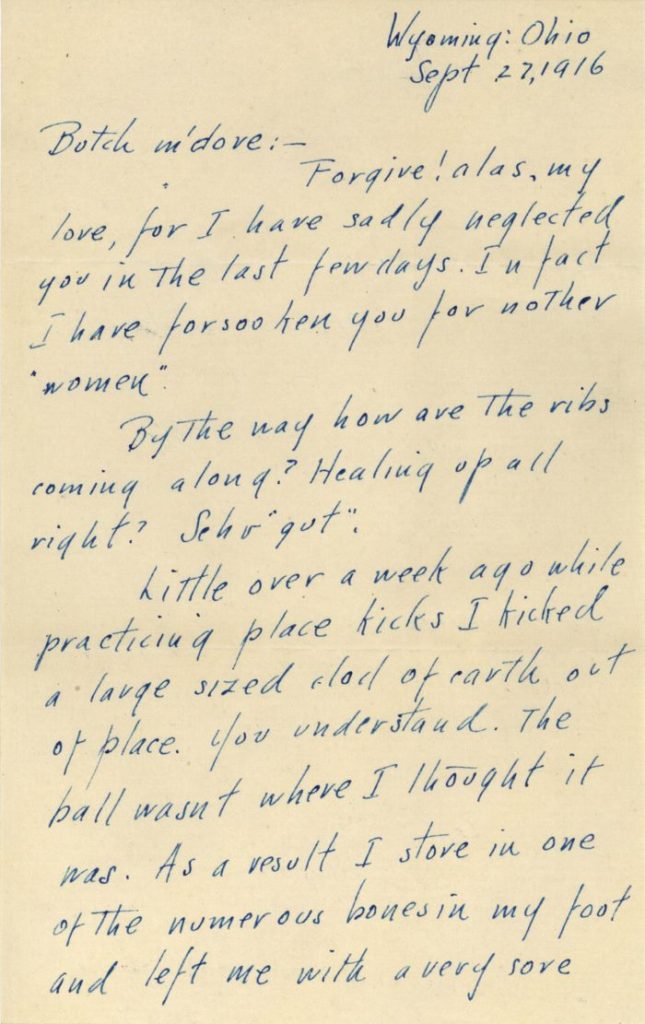 Wyoming: Ohio
Sept 27, 1916
Butch m'dove:—
Forgive! alas, my
love, for I have sadly neglected
you in the last few days. In fact
I have forsooken you for nother
"women".
By the way how are the ribs
coming along? Healing up all
right? Sehr "gut".
Little over a week ago while
practicing place kicks I kicked
a large sized clod of earth out
of place. You understand. The
ball wasnt where I thought it
was. As a result I stove in one
of the numerous bones in my foot
and left me with a very sore